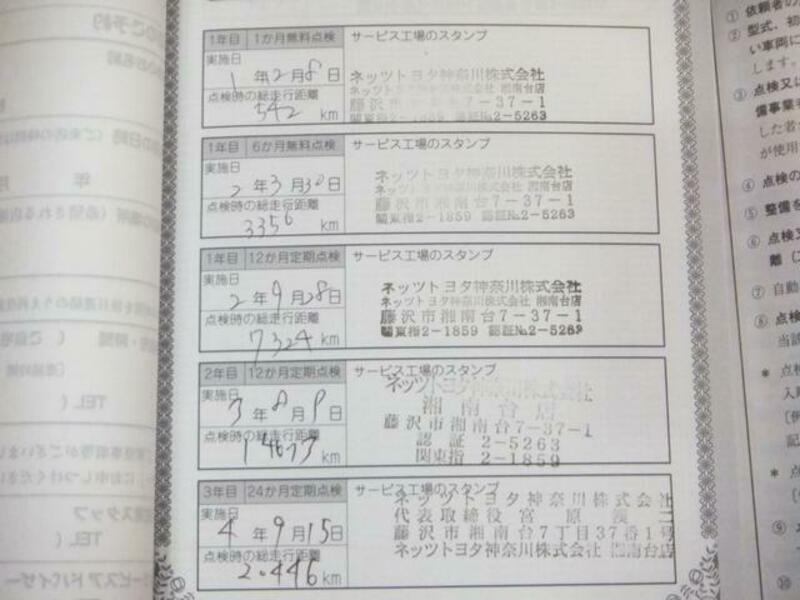 1年目 1か月無料点検 サービス工場のスタンプ
実施日
1年2月8日
点検時の総走行距離
542 km
ネッツトヨタ神奈川株式会社
ネッツトヨタ神奈川株式会社 湘南台店
藤沢市湘南台7-37-1
関東指2-1859 認証№2-5263
1年目 6か月無料点検 サービス工場のスタンプ
実施日
2年3月30日
点検時の総走行距離
3356 km
ネッツトヨタ神奈川株式会社
ネッツトヨタ神奈川株式会社 湘南台店
藤沢市湘南台7-37-1
関東指2-1859 認証№2-5263
1年目 12か月定期点検 サービス工場のスタンプ
実施日
2年9月28日
点検時の総走行距離
7324 km
ネッツトヨタ神奈川株式会社
ネッツトヨタ神奈川株式会社 湘南台店
藤沢市湘南台7-37-1
関東指2-1859 認証№2-5263
2年目 12か月定期点検 サービス工場のスタンプ
実施日
3年8月9日
点検時の総走行距離
km
ネッツトヨタ神奈川株式会社
湘南台店
藤沢市湘南台7-37-1
認証 2-5263
関東指 2-1859
3年目 24か月定期点検 サービス工場のスタンプ
実施日
4年9月15日
点検時の総走行距離
2.446 km
ネッツトヨタ神奈川株式会社
代表取締役 宮原 二
藤沢市湘南台7丁目37番1号
ネッツトヨタ神奈川株式会社 湘南台店
① 依頼者の
② 型式、初
い車両に
します。
③ 点検又は
備事業者
した若
が使用
④ 点検の
⑤ 整備を
⑥ 点検又
離
⑦ 自動
⑧ 点検
当該
* 点検
入
記
* 点
⑨
⑩